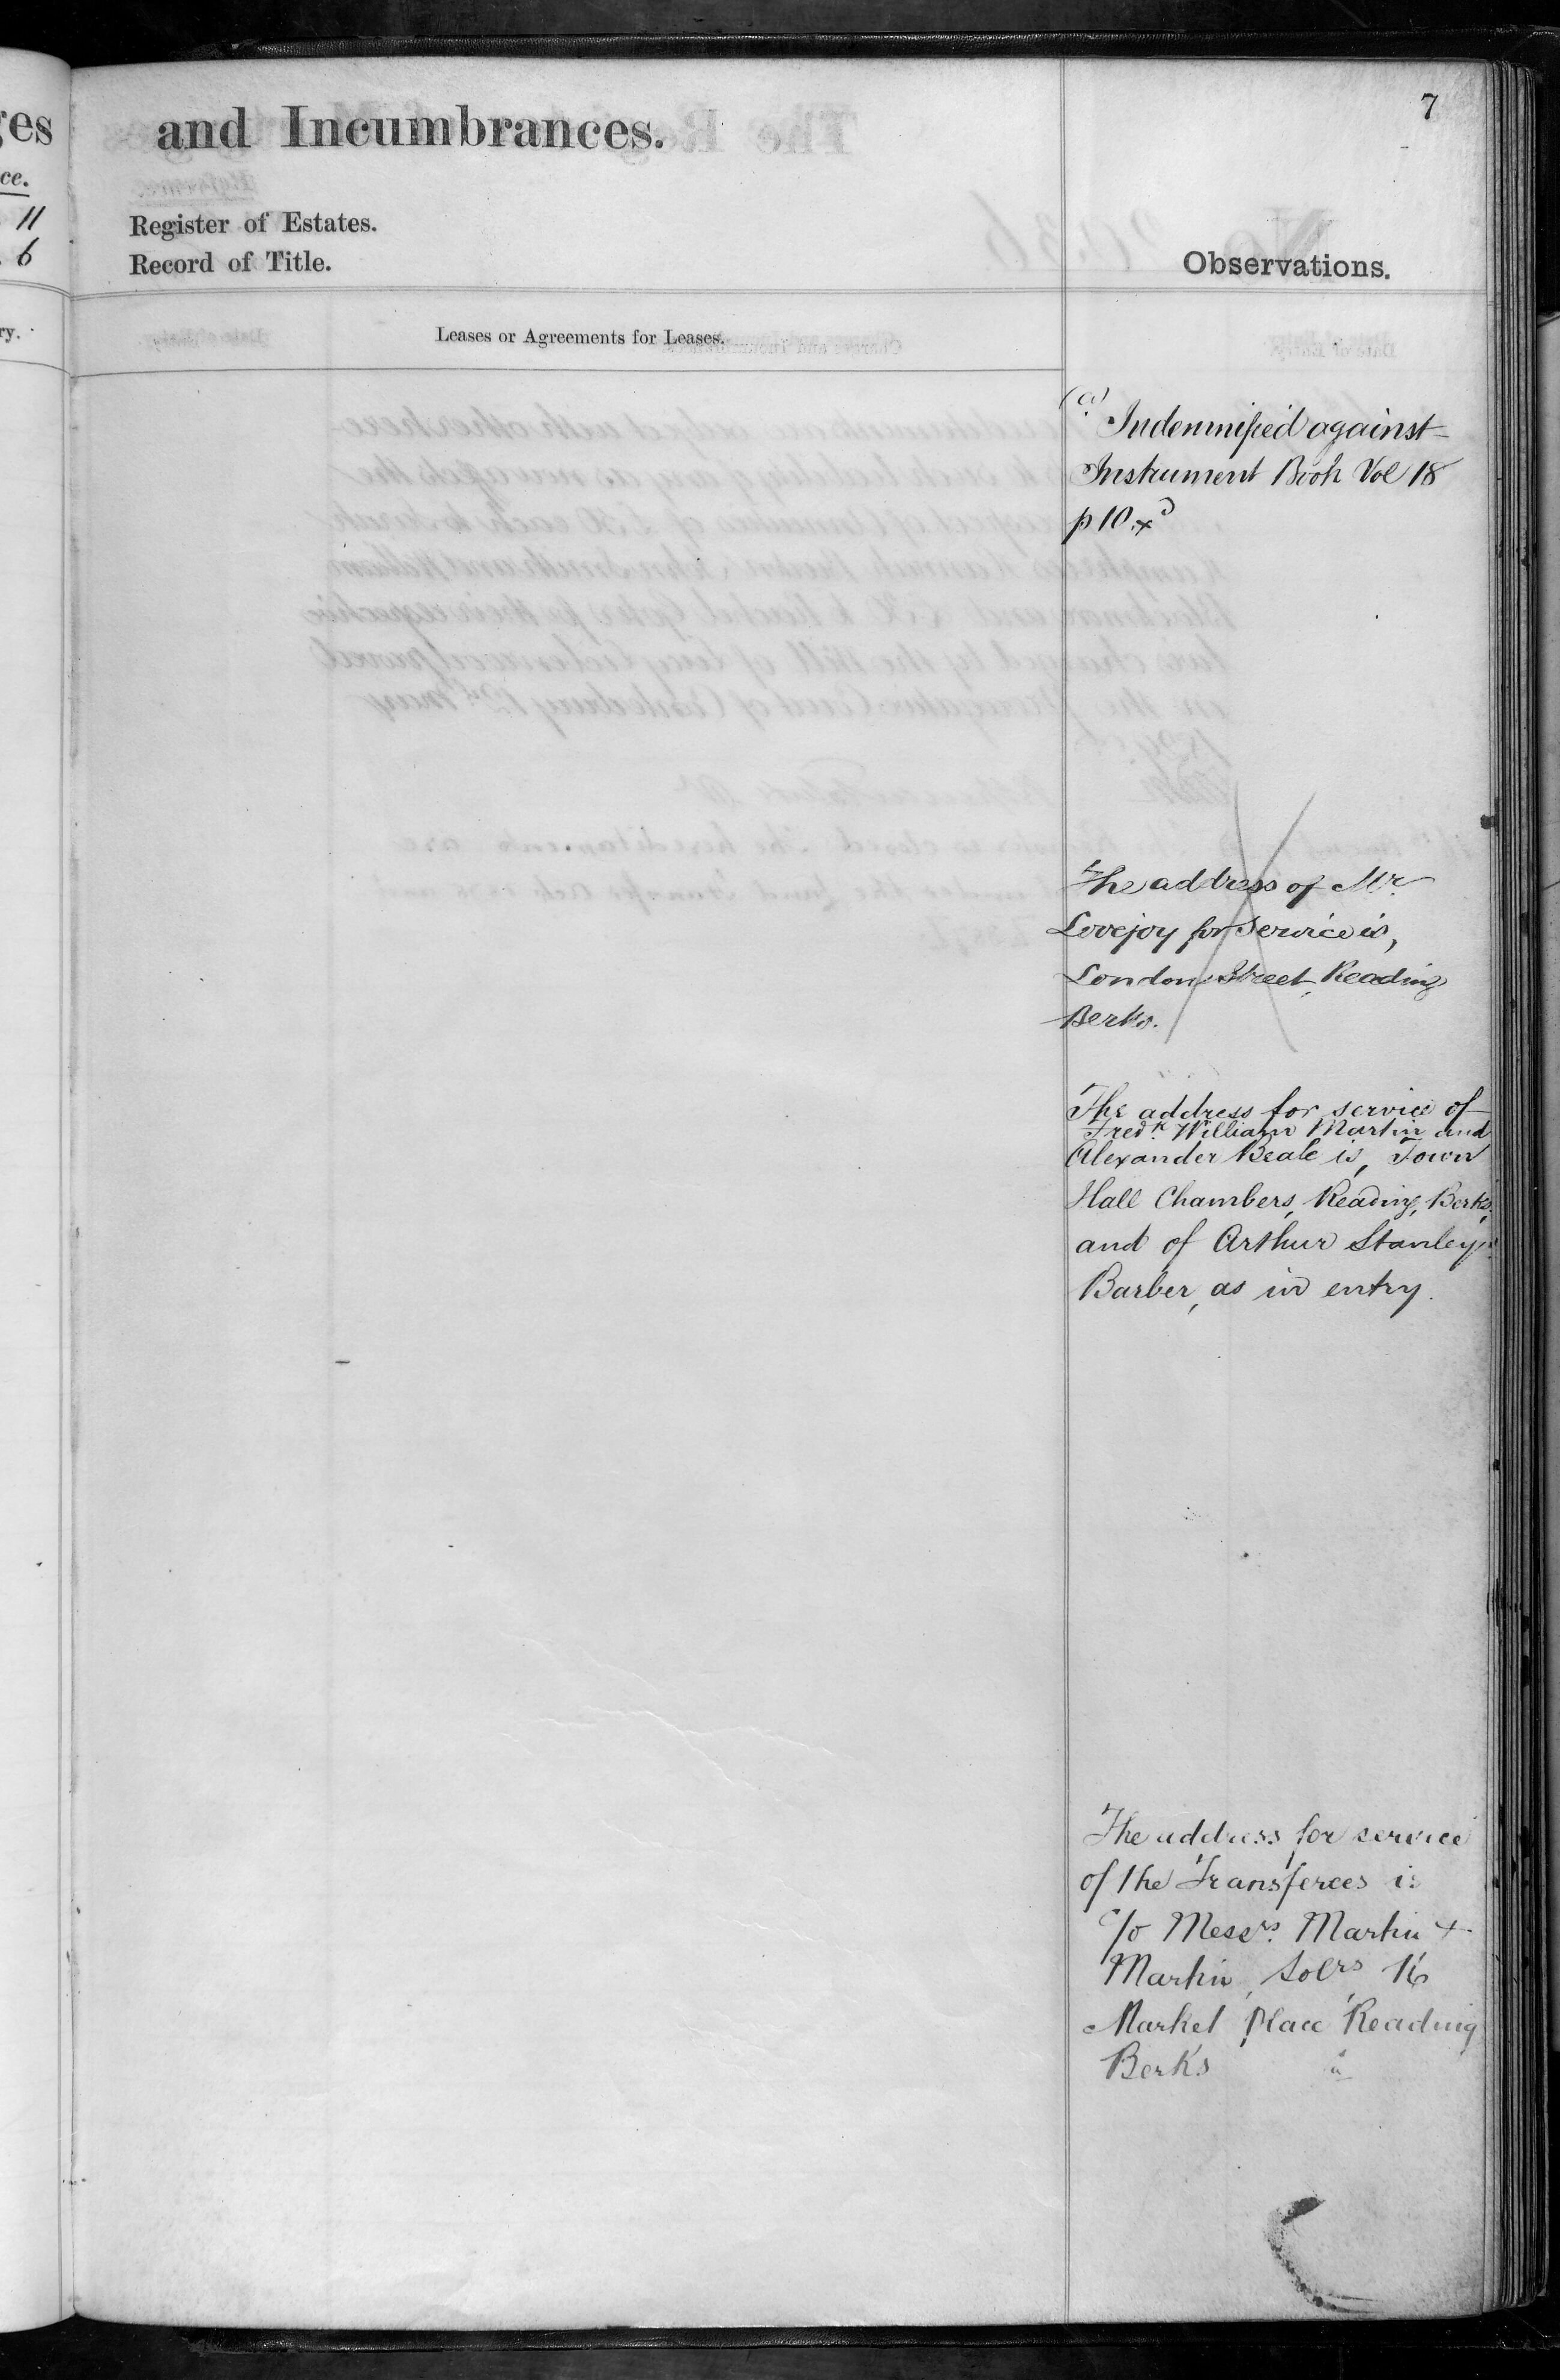 ges
ce.
11
6
ry.
7
and Incumbrances.
Register of Estates.
Record of Title.
Observations.
Leases or Agreements for Leases.
(a) Indemnified against
Instrument Book Vol 18
p 10.
The address of Mr.
Lovejoy for service is,
London Street, Reading
Berks.
The address for service of
Fredk. William Martin and
Alexander Beale is, Town
Hall Chambers, Reading, Berks,
and of Arthur Stanley
Barber, as in entry.
The address for service
of the Transferees is
c/o Messrs. Martin +
Martin, Solrs, 16
Market Place Reading
Berks